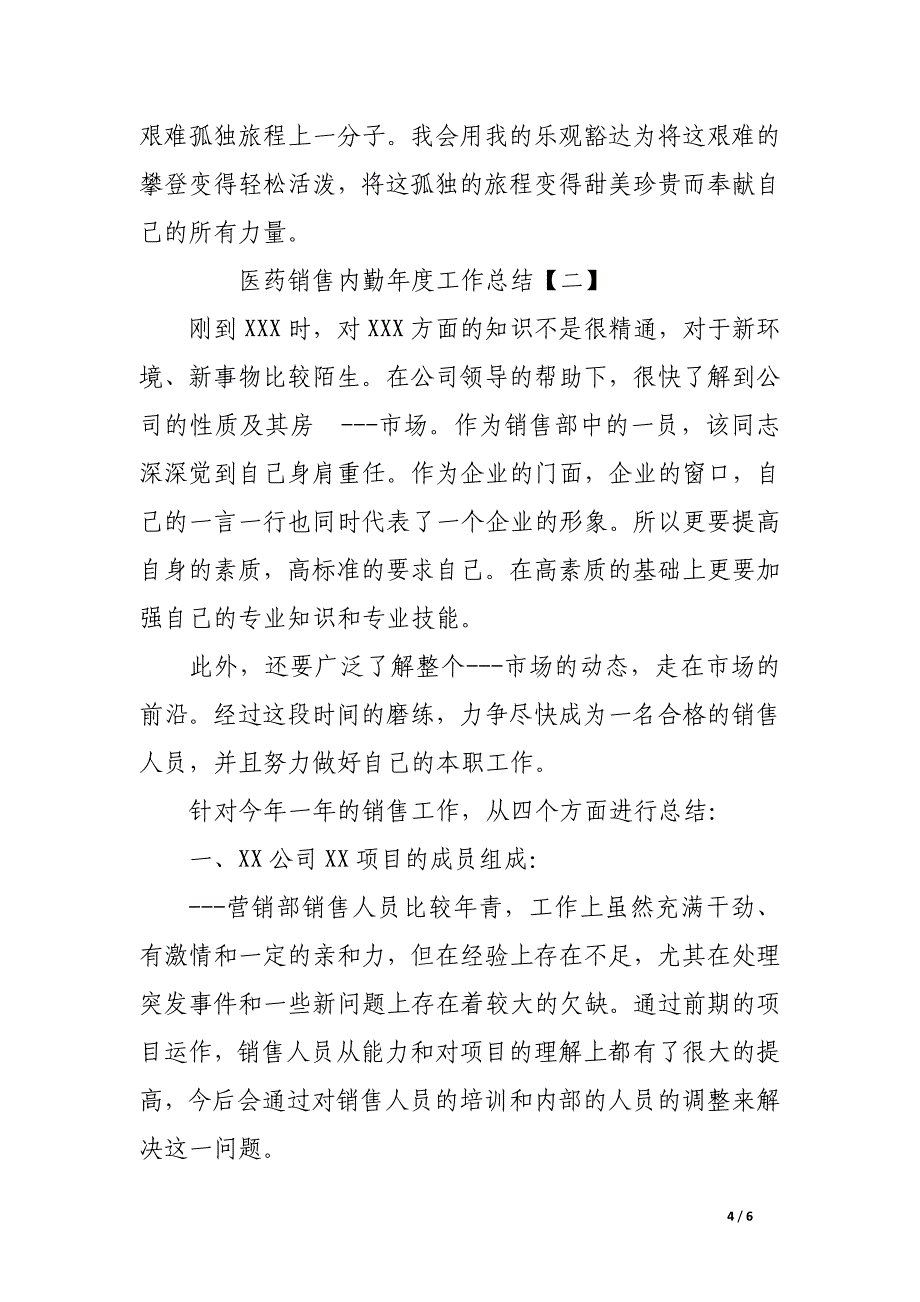 艰难孤独旅程上一分子。我会用我的乐观豁达为将这艰难的
攀登变得轻松活泼，将这孤独的旅程变得甜美珍贵而奉献自
己的所有力量。
医药销售内勤年度工作总结【二】
刚到 XXX 时，对 XXX 方面的知识不是很精通，对于新环
境、新事物比较陌生。在公司领导的帮助下，很快了解到公
司的性质及其房　---市场。作为销售部中的一员，该同志
深深觉到自己身肩重任。作为企业的门面，企业的窗口，自
己的一言一行也同时代表了一个企业的形象。所以更要提高
自身的素质，高标准的要求自己。在高素质的基础上更要加
强自己的专业知识和专业技能。
此外，还要广泛了解整个---市场的动态，走在市场的
前沿。经过这段时间的磨练，力争尽快成为一名合格的销售
人员，并且努力做好自己的本职工作。
针对今年一年的销售工作，从四个方面进行总结：
一、XX 公司 XX 项目的成员组成：
---营销部销售人员比较年青，工作上虽然充满干劲、
有激情和一定的亲和力，但在经验上存在不足，尤其在处理
突发事件和一些新问题上存在着较大的欠缺。通过前期的项
目运作，销售人员从能力和对项目的理解上都有了很大的提
高，今后会通过对销售人员的培训和内部的人员的调整来解
决这一问题。
4 / 6